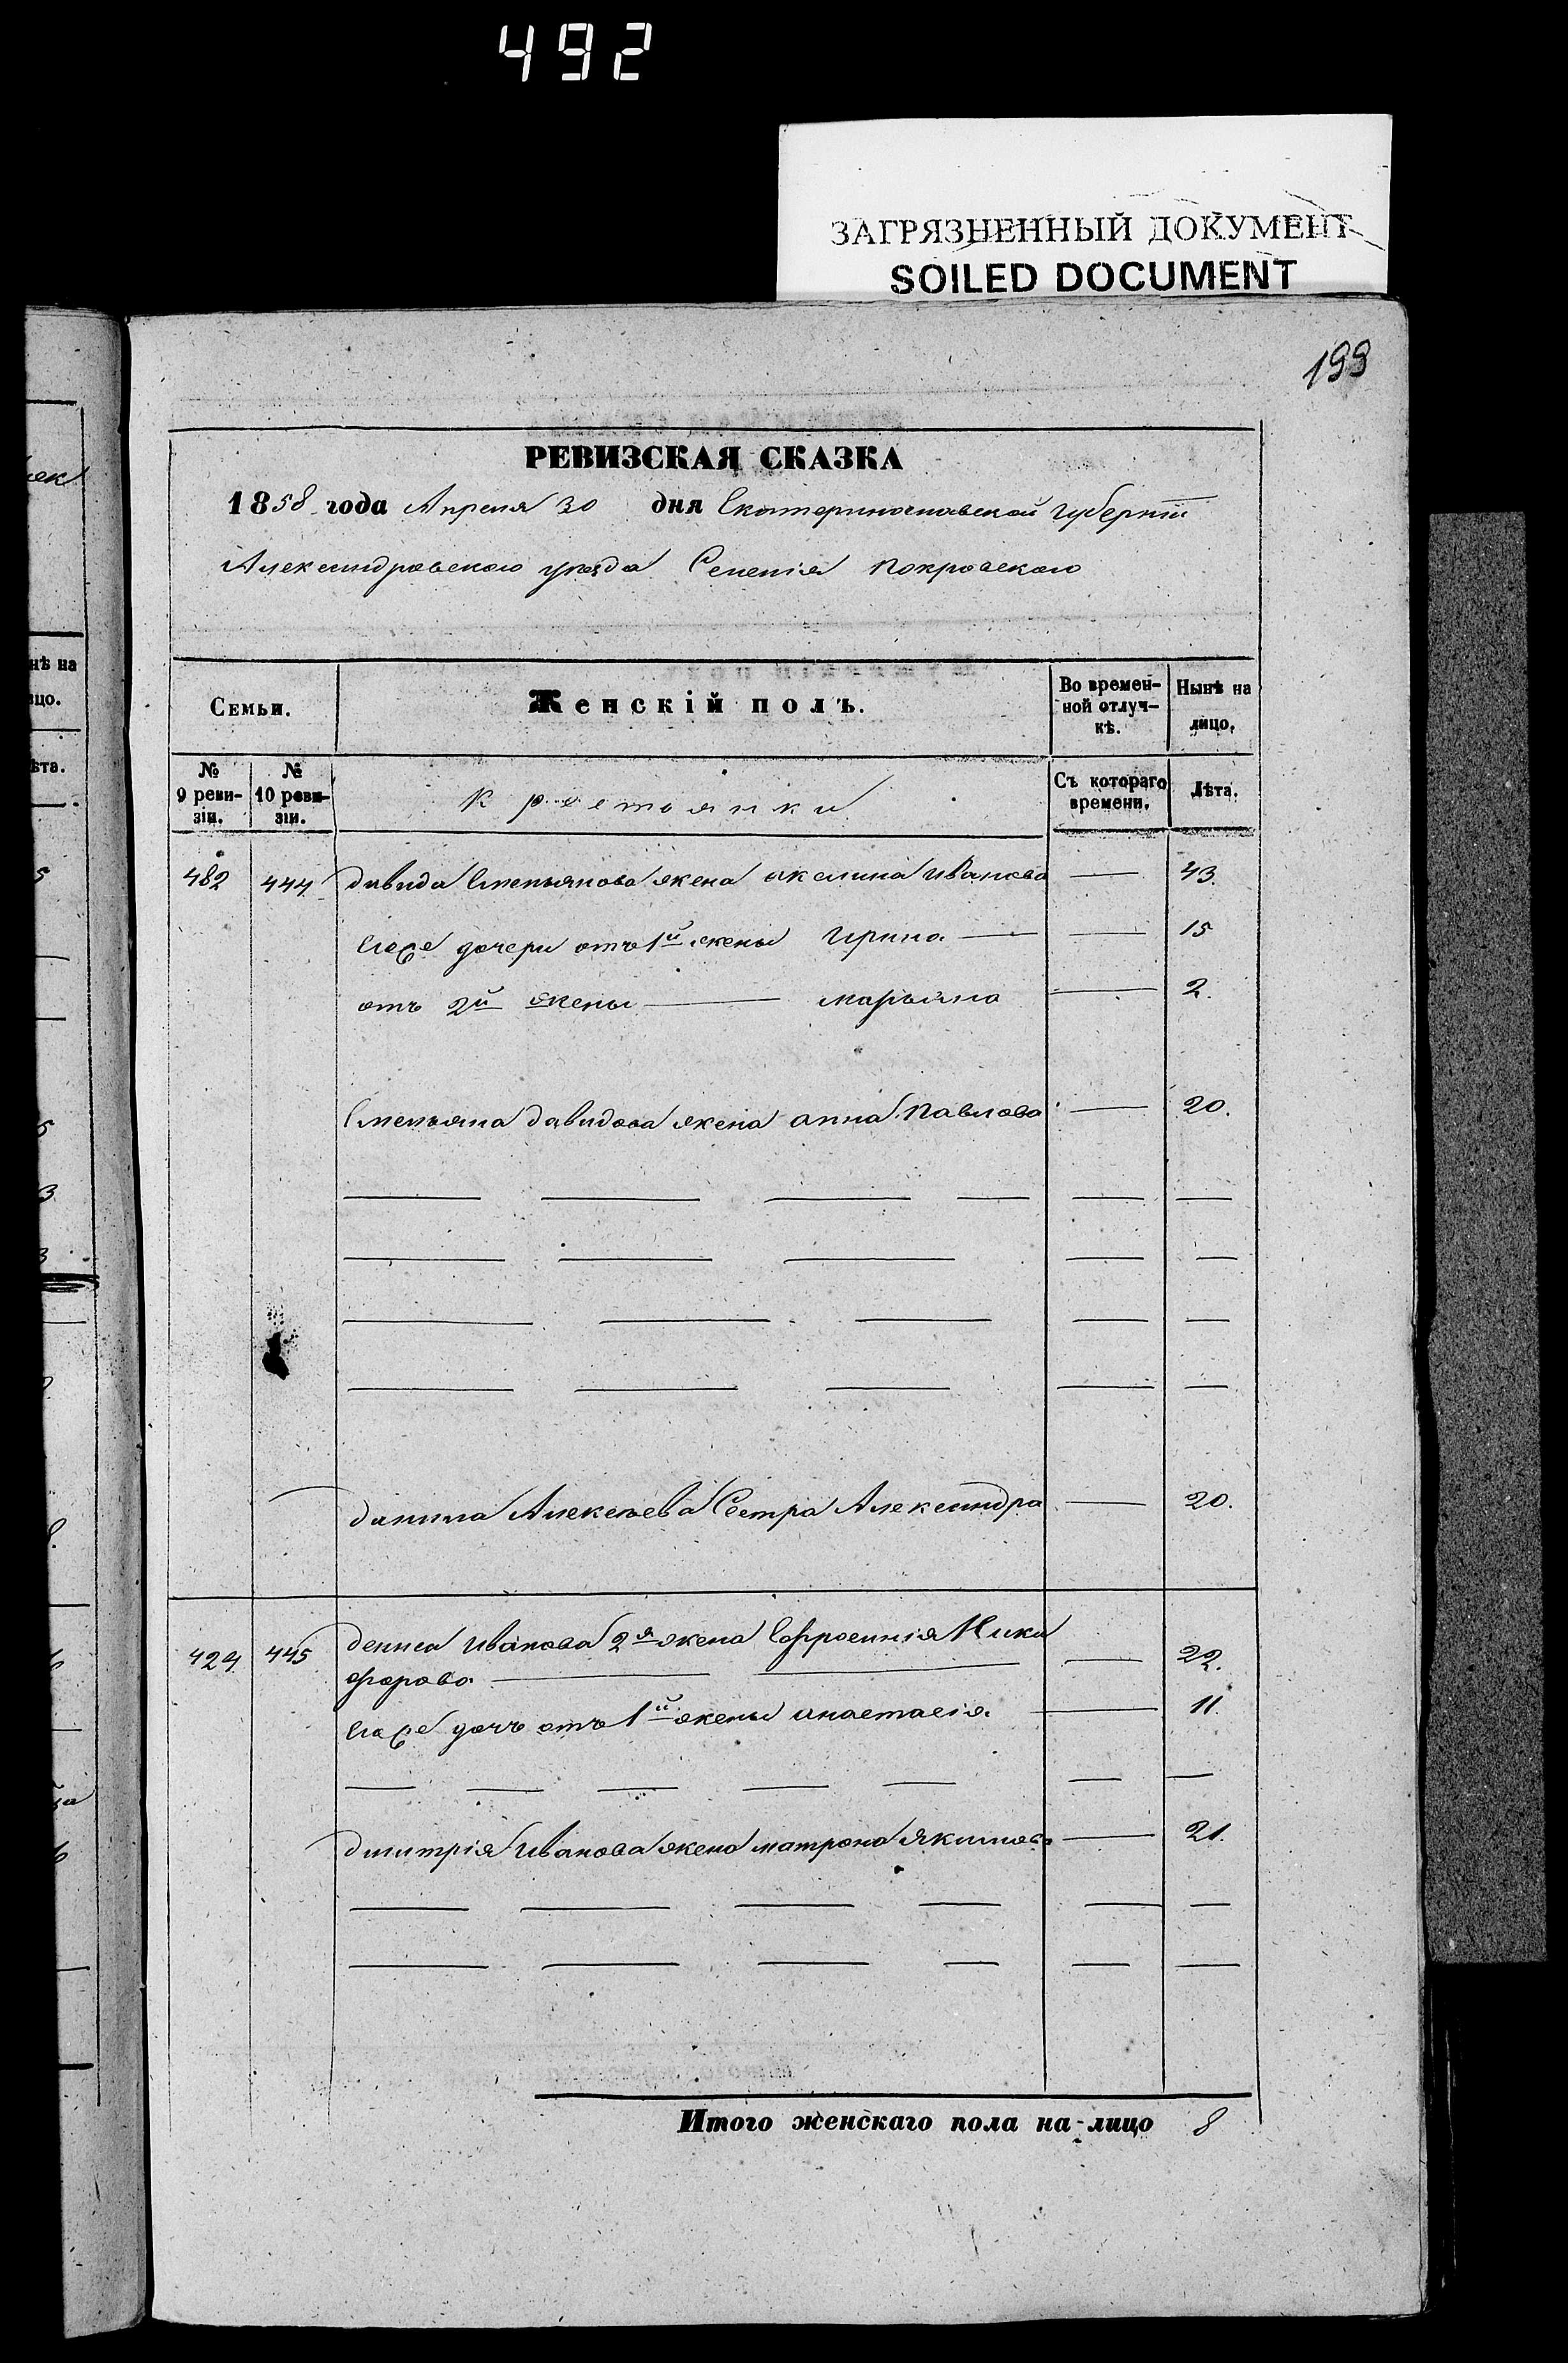 492
ЗАГРЯЗНЕННЫЙ ДОКУМЕНТ
SOILED DOCUMENT
199
РЕВИЗСКАЯ СКАЗКА
1858 года Апреля 30 дня Екатеринославской губерніи
Александровского уезда Селенія Покровского
Семьи.
Женскій полъ.
Во времен-
ной отлуч-
кѣ.
Нынѣ на
лицо.
№
9 реви-
зіи.
№
10 реви-
зіи.
Крестьянки
Съ котораго
времени.
Лѣта.
482 444 давида Емельянова жена акелина иванова — 43.
Его же дочери отъ 1й жены Ирина — — 15
отъ 2й жены — марьяна — 2.
Емельяна давидова жена анна Павлова — 20.
данила Алексѣева Сестра Александра — 20.
424 445 дениса иванова 2я жена Ефросинія Ники
форова — — — 22.
Его же дочь отъ 1й жены анастасія — 11.
дмитрія Иванова жена матрона Якимова — 21.
Итого женскаго пола на-лицо 8